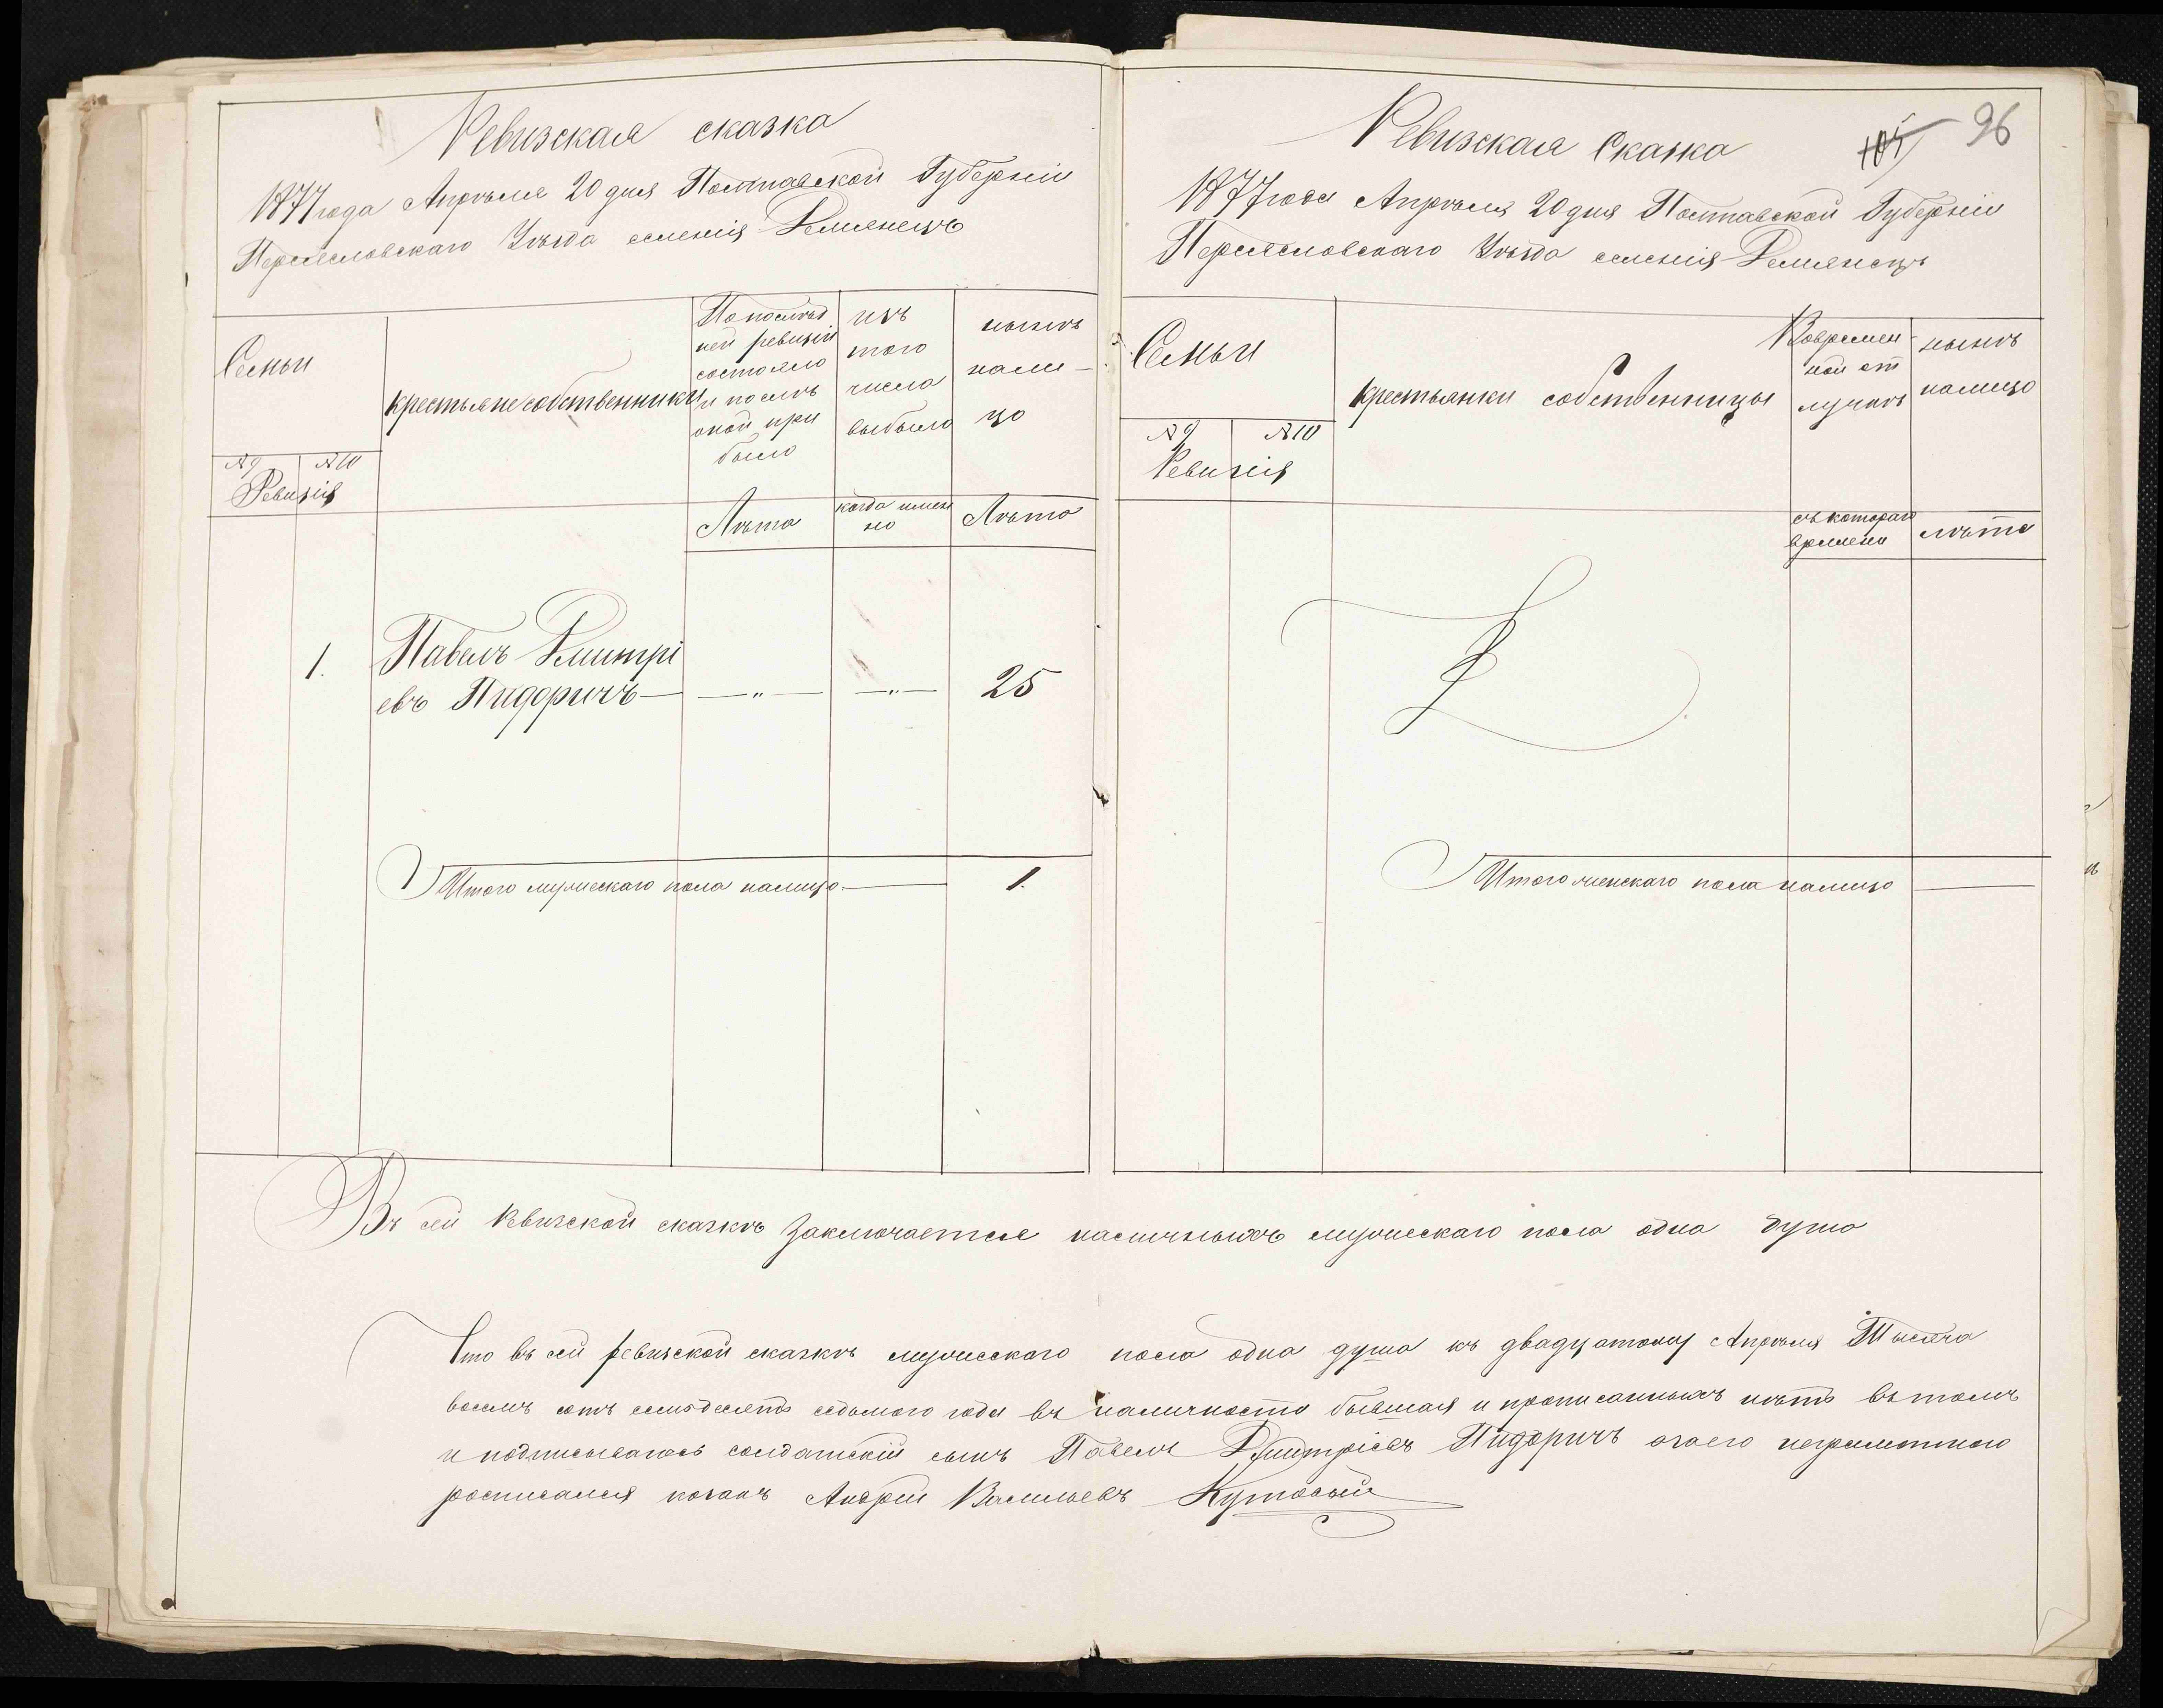 Ревизская сказка
1877 года Апрѣля 20 дня Полтавской Губерніи
Переясловскаго Уѣзда селенія Демянецъ
Семьи
№ 9 № 10
Ревизія
крестьяне собственники
По послѣд
ней ревизіи
состояло
и послѣ
оной при
было
изъ
того
числа
выбыло
нынѣ
нали-
цо
Лѣта
когда имен
но
Лѣта
1.
Павелъ Дмитрі
евъ Пидоричъ — — „ — — „ — 25
Итого мужескаго пола налицо — 1.
Ревизская Сказка
105 96
1877 года Апрѣля 20 дня Полтавской Губерніи
Переясловскаго Уѣзда селенія Демянецъ
Семьи
№ 9 № 10
Ревизія
крестьянки собственницы
Вовремен-
ной от
лучкѣ
нынѣ
налицо
съ котораго
времени
лѣта
Итого женскаго пола налицо —
Въ сей Ревизской сказкѣ заключается наличныхъ мужескаго пола одна душа
Что въ сей ревизской сказкѣ мужескаго пола одна душа къ двадцатому Апрѣля Тысяча
восемь сотъ семьдесятъ седьмого года въ наличности бывшая и прописанныхъ нѣтъ въ томъ
и подписываюсь солдатскій сынъ Павелъ Дмитріевъ Пидоричъ азаего неграмотного
росписался козакъ Андрей Васильевъ Кутовый